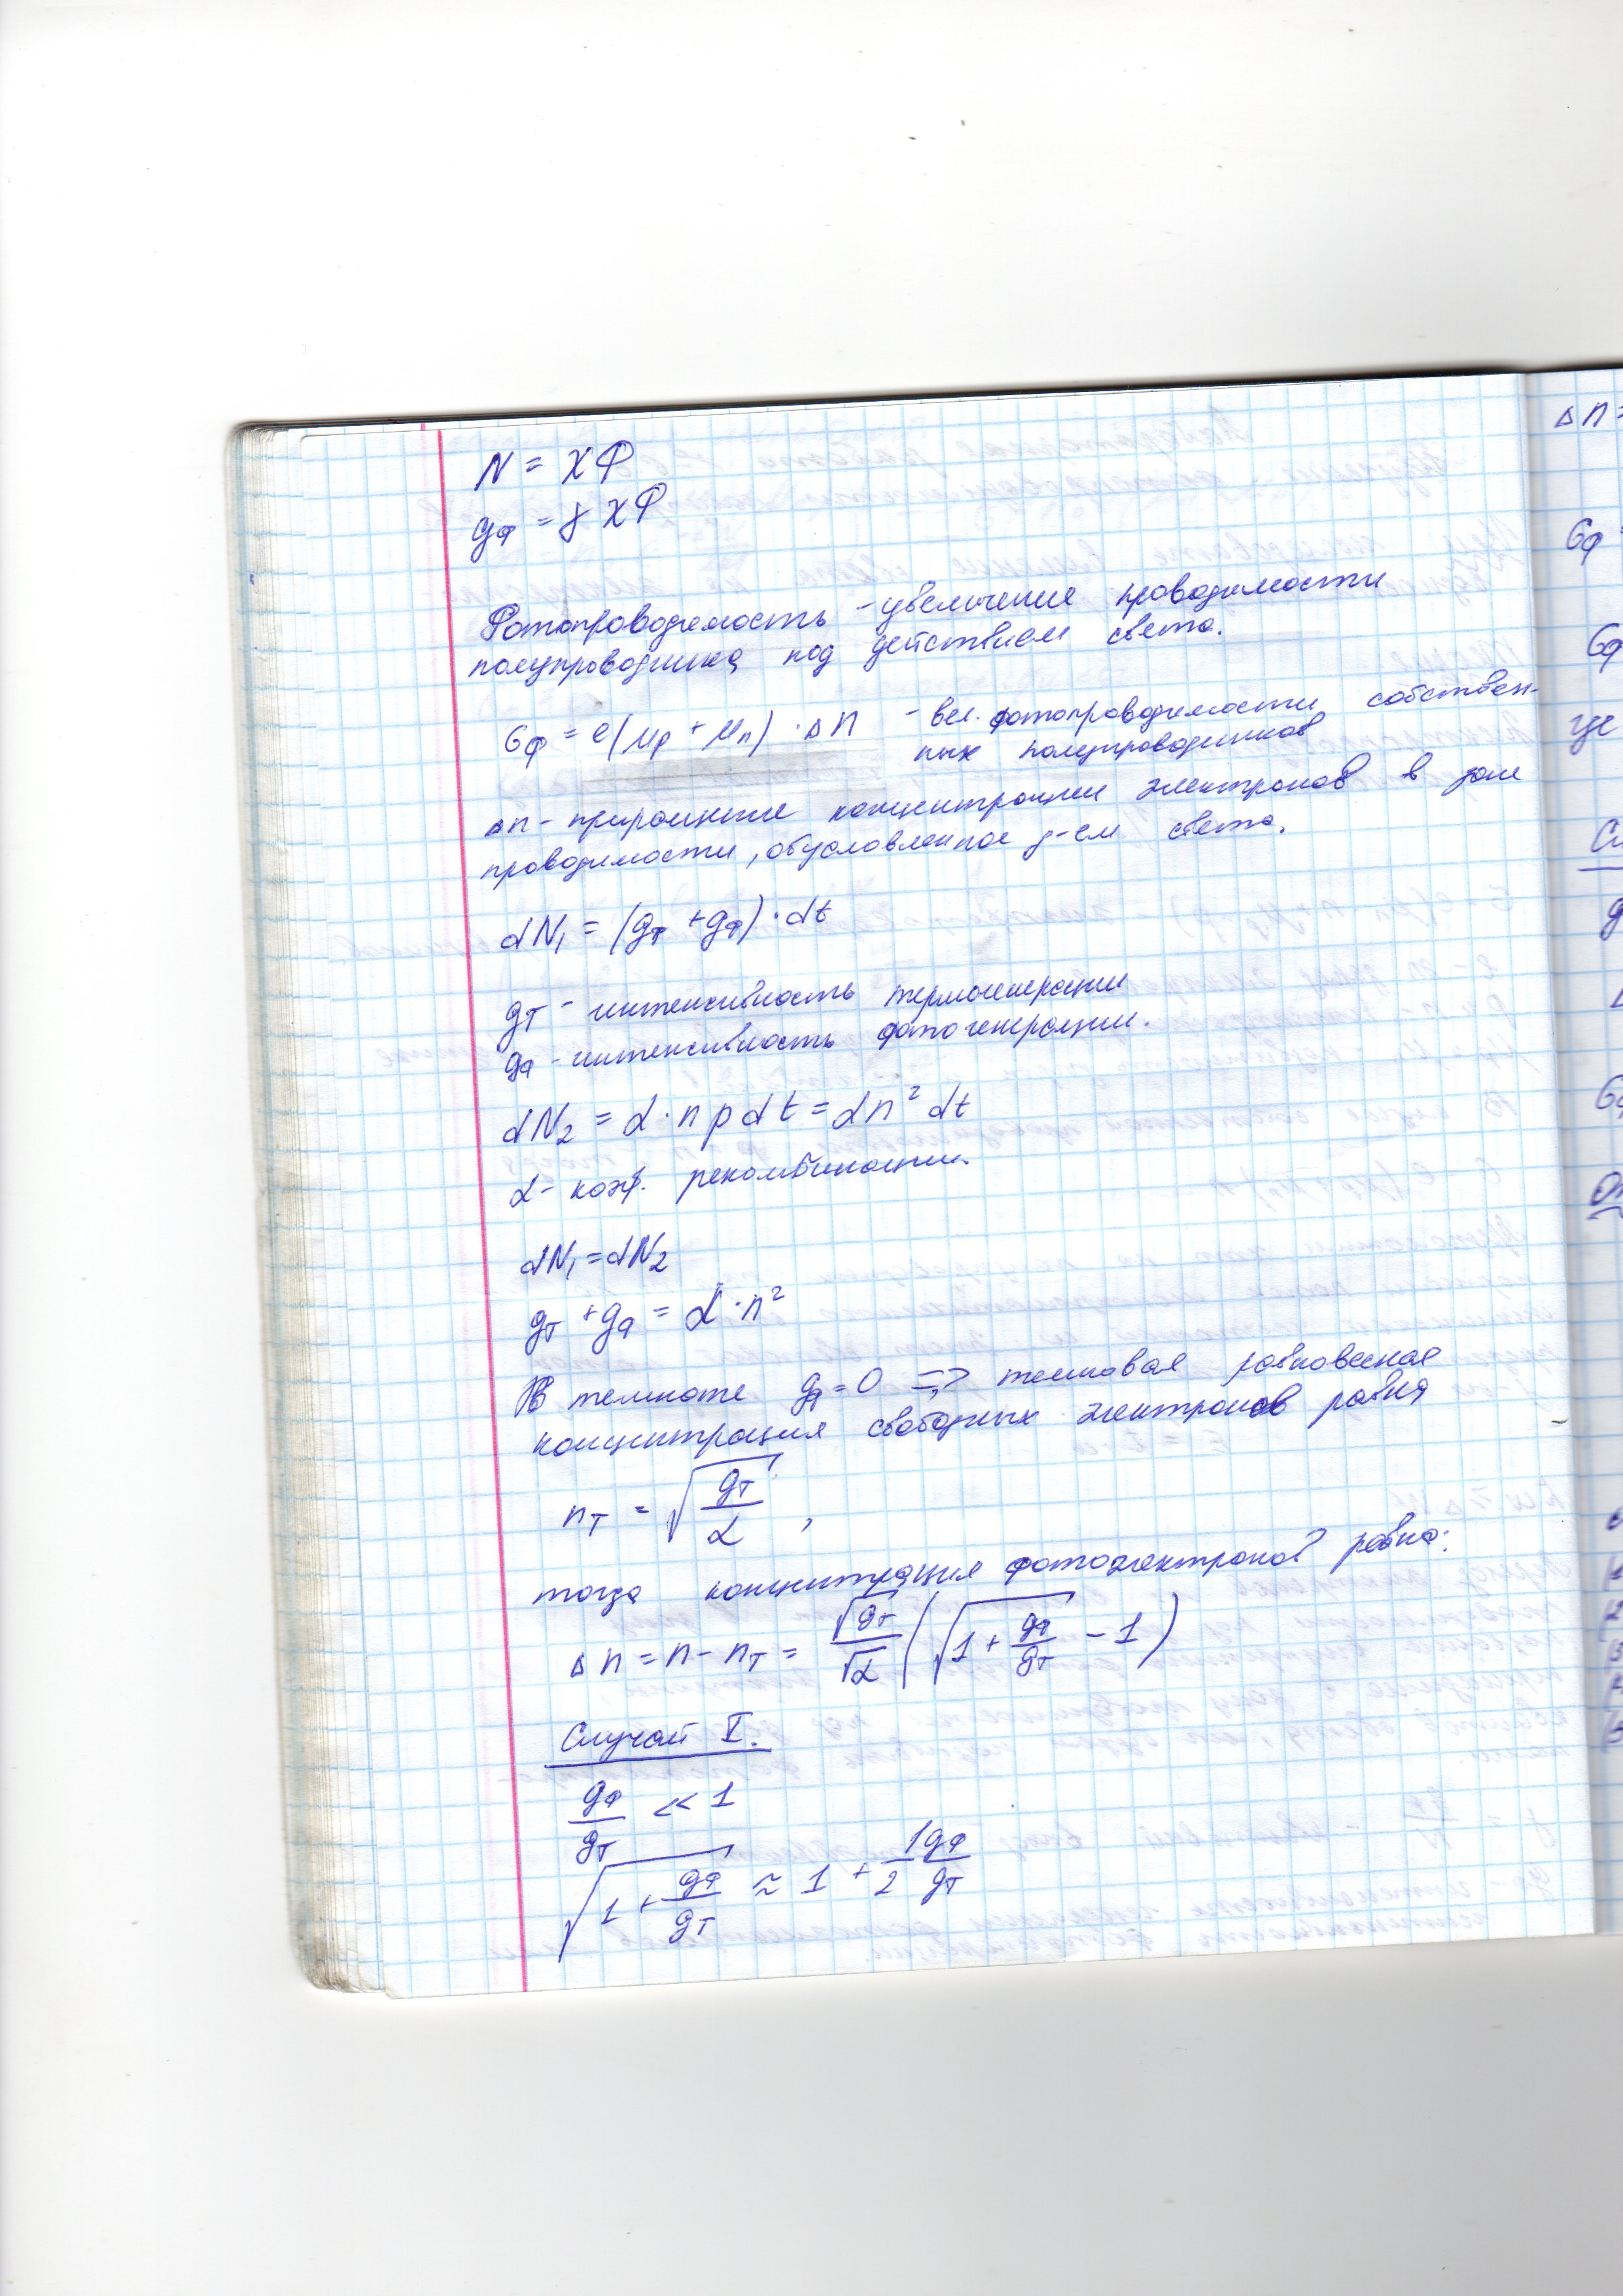 N = χΦ
gф = γ χΦ
Фотопроводимость - увеличение проводимости
полупроводника под действием света.
σф = e(μp + μn) · Δn - вел. фотопроводимости собствен-
ных полупроводников
Δn - приращение концентрации электронов в зоне
проводимости, обусловленное д-ем света.
dN₁ = (gт + gф) · dt
gт - интенсивность термогенерации
gф - интенсивность фотогенерации.
dN₂ = α · n p dt = αn² dt
α - коэф. рекомбинации.
dN₁ = dN₂
gт + gф = α · n²
В темноте gф = 0 => темновая равновесная
концентрация свободных электронов равна
nт = √(gт/α) ,
тогда концентрация фотоэлектронов равна:
Δn = n - nт = √gт/√α (√(1 + gф/gт) - 1)
Случай I.
gф/gт << 1
√(1 + gф/gт) ≈ 1 + 1/2 gф/gт
Δn =
σф =
σф
где